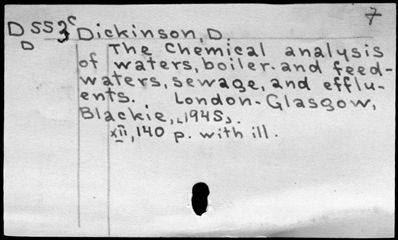 7
D553c Dickinson, D.
D The Chemical analysis
of waters, boiler- and feed-
waters, sewage, and efflu-
ents. London-Glasgow,
Blackie, [1945].
xii, 140 p. with ill.